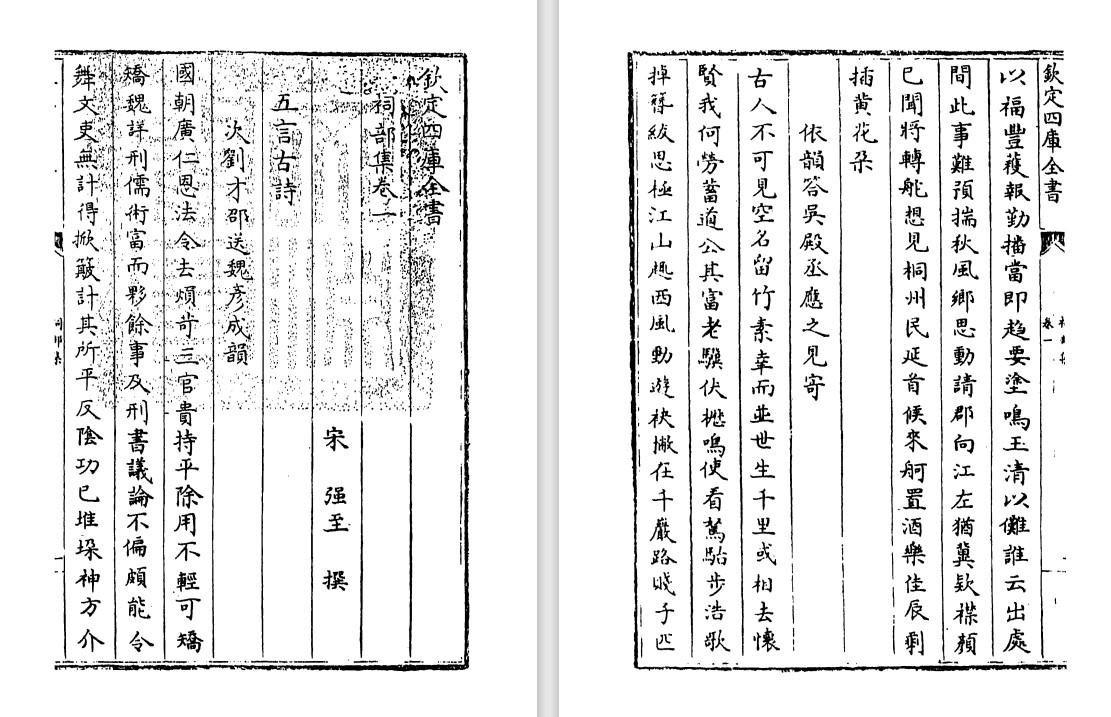 欽定四庫全書
祠部集卷一
宋 强至 撰
五言古詩
次劉才邵送魏彦成韻
國朝廣仁恩法令去煩苛三官貴持平除用不輕可矯
矯魏詳刑儒術富而夥餘事及刑書議論不偏頗能令
舞文吏無計得掀簸計其所平反陰功已堆垛神方介
欽定四庫全書
卷一
以福豐穫報勤播當即趋要塗鳴玉清以儺誰云出處
間此事難預揣秋風鄉思動請郡向江左猶冀欵襟顔
已聞將轉舵想見桐州民延首候來舸置酒樂佳辰剩
插黄花朶
依韻答吳殿丞應之見寄
古人不可見空名留竹素幸而並世生千里或相去懷
賢我何勞蓄道公其富老驥伏櫪鳴使看駑駘步浩歌
掉簪紱思極江山趣西風動遊袂撇在千巖路賤子匹